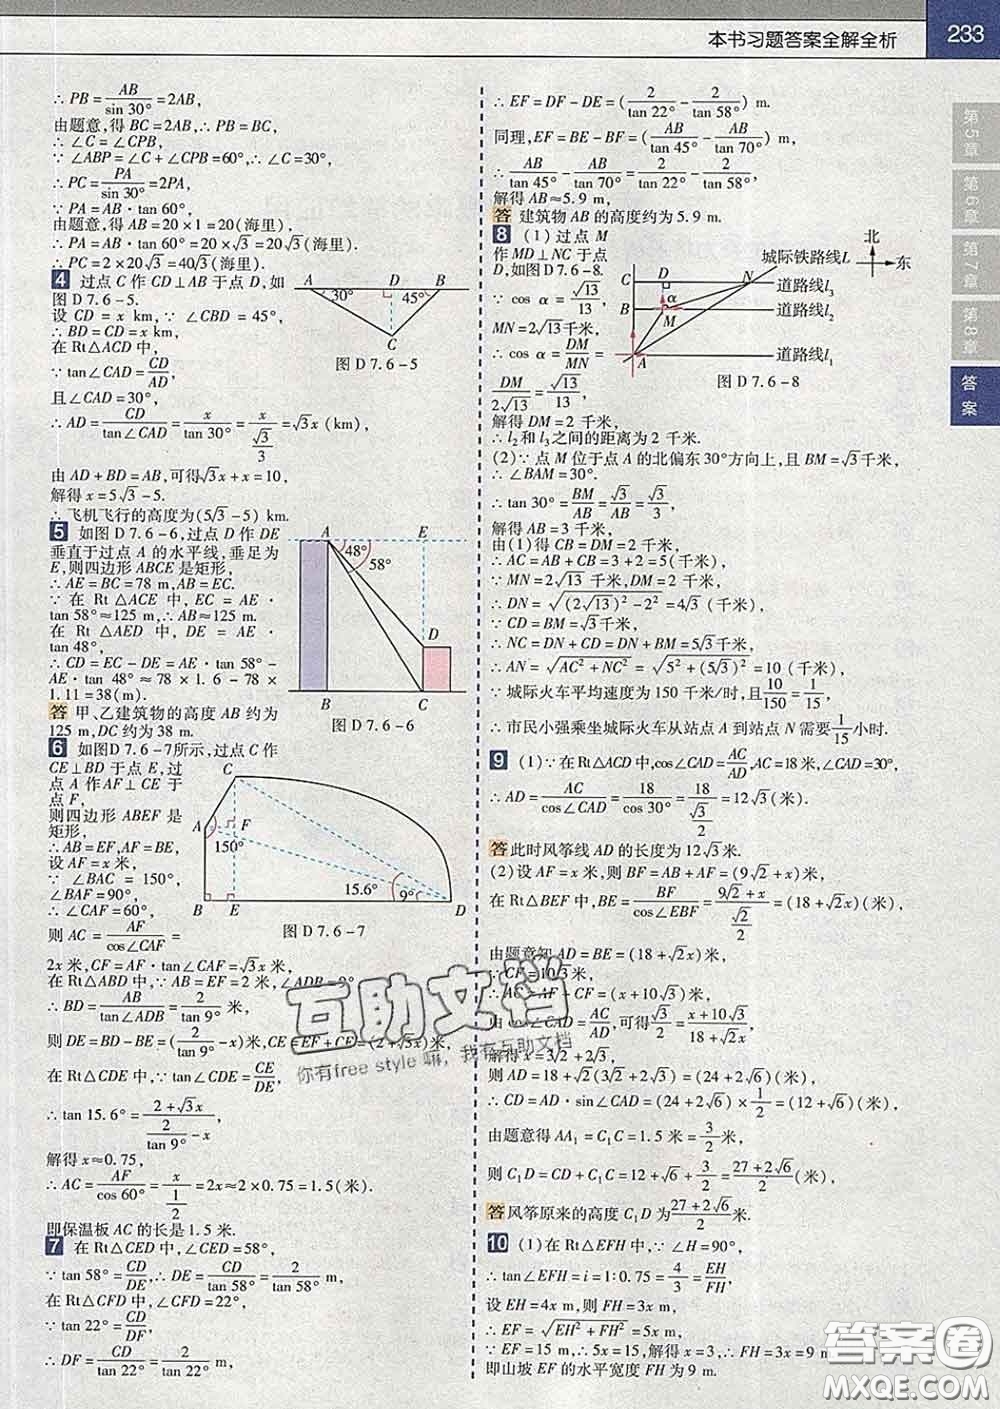 本书习题答案全解全析 233
∴PB=AB/sin 30°=2AB,
由题意,得 BC=2AB,∴PB=BC,
∴∠C=∠CPB,
∵∠ABP=∠C+∠CPB=60°,∴∠C=30°,
∴PC=PA/sin 30°=2PA,
∵PA=AB·tan 60°,
由题意,得AB=20×1=20(海里),
∴PA=AB·tan 60°=20×√3=20√3(海里).
∴PC=2×20√3=40√3(海里).
4 过点 C 作 CD⊥AB 于点 D,如
图 D7.6-5.
设 CD=x km,∵∠CBD=45°,
∴BD=CD=x km,
在 Rt△ACD 中,
∵tan∠CAD=CD/AD,
且∠CAD=30°,
∴AD=CD/tan∠CAD=x/tan 30°=x/(√3/3)=√3x(km),
由 AD+BD=AB,可得√3x+x=10,
解得 x=5√3-5.
∴飞机飞行的高度为(5√3-5) km.
A D B
30° 45°
C
图 D7.6-5
5 如图 D7.6-6,过点 D 作 DE
垂直于过点 A 的水平线,垂足为
E,则四边形 ABCE 是矩形,
∴AE=BC=78 m,AB=EC.
∵在 Rt△ACE 中,EC=AE·
tan 58°≈125 m,∴AB≈125 m.
在 Rt△AED 中,DE=AE·
tan 48°,
∴CD=EC-DE=AE·tan 58°-
AE·tan 48°≈78×1.6-78×
1.11≈38(m).
答 甲、乙建筑物的高度 AB 约为
125 m,DC约为 38 m.
A E
48°
58°
D
B C
图 D7.6-6
6 如图D7.6-7所示,过点 C 作
CE⊥BD 于点 E,过
点 A 作AF⊥CE 于
点 F,
则四边形 ABEF 是
矩形,
∴AB=EF,AF=BE,
设 AF=x 米,
∵∠BAC=150°,
∠BAF=90°,
∴∠CAF=60°,
则 AC=AF/cos∠CAF=
2x 米,CF=AF·tan∠CAF=√3x米,
在 Rt△ABD 中,∵AB=EF=2 米,∠ADB=9°,
∴BD=AB/tan∠ADB=2/tan 9° 米,
则 DE=BD-BE=(2/tan 9°-x)米,CE=EF+CF=(2+√3x)米,
在 Rt△CDE 中,∵tan∠CDE=CE/DE,
∴tan 15.6°=(2+√3x)/(2/tan 9°-x)
解得 x≈0.75,
∴AC=AF/cos 60°=x/(1/2)=2x≈2×0.75=1.5(米).
即保温板 AC 的长是 1.5 米.
C
A F
150°
15.6° 9°
B E D
图 D7.6-7
7 在 Rt△CED 中,∠CED=58°,
∵tan 58°=CD/DE,∴DE=CD/tan 58°=2/tan 58° m,
在 Rt△CFD 中,∠CFD=22°,
∵tan 22°=CD/DF,
∴DF=CD/tan 22°=2/tan 22° m,
∴EF=DF-DE=(2/tan 22°-2/tan 58°) m.
同理,EF=BE-BF=(AB/tan 45°-AB/tan 70°) m,
∴AB/tan 45°-AB/tan 70°=2/tan 22°-2/tan 58°,
解得 AB≈5.9 m,
答 建筑物 AB 的高度约为 5.9 m.
8 (1)过点 M
作 MD⊥NC 于点
D,如图 D7.6-8.
∵cos α=√13/13,
MN=2√13千米,
∴cos α=DM/MN=
DM/2√13=√13/13,
解得 DM=2 千米,
∴l2和 l3之间的距离为 2 千米.
北
东
城际铁路线L
道路线l3
道路线l2
道路线l1
C D N
α
B M
A
图 D7.6-8
(2)∵点 M 位于点 A 的北偏东30°方向上,且 BM=√3千米,
∴∠BAM=30°.
∴tan 30°=BM/AB=√3/AB=√3/3,
解得 AB=3 千米,
由(1)得 CB=DM=2 千米,
∴AC=AB+CB=3+2=5(千米),
∵MN=2√13 千米,DM=2 千米,
∴DN=√((2√13)²-2²)=4√3(千米),
∵CD=BM=√3千米,
∴NC=DN+CD=DN+BM=5√3千米,
∴AN=√(AC²+NC²)=√(5²+(5√3)²)=10(千米),
∵城际火车平均速度为 150 千米/时,且10/150=1/15,
∴市民小强乘坐城际火车从站点 A 到站点 N 需要1/15小时.
9 (1)∵在 Rt△ACD 中,cos∠CAD=AC/AD,AC=18 米,∠CAD=30°,
∴AD=AC/cos∠CAD=18/cos 30°=18/(√3/2)=12√3(米).
答 此时风筝线 AD 的长度为 12√3米.
(2)设 AF=x 米,则 BF=AB+AF=(9√2+x)米,
在 Rt△BEF 中,BE=BF/cos∠EBF=(9√2+x)/(√2/2)=(18+√2x)(米),
由题意知 AD=BE=(18+√2x)米,
∵CF=10√3米,
∴AC=AF+CF=(x+10√3)米,
由 cos∠CAD=AC/AD,可得√3/2=(x+10√3)/(18+√2x),
解得 x=3√2+2√3,
则 AD=18+√2(3√2+2√3)=(24+2√6)(米),
∴CD=AD·sin∠CAD=(24+2√6)×1/2=(12+√6)(米),
由题意得 AA1=C1C=1.5 米=3/2米,
则 C1D=CD+C1C=12+√6+3/2=(27+2√6)/2(米),
答 风筝原来的高度 C1D 为(27+2√6)/2米.
10 (1)在 Rt△EFH 中,∵∠H=90°,
∴tan∠EFH=i=1:0.75=4/3=EH/FH,
设 EH=4x m,则 FH=3x m,
∴EF=√(EH²+FH²)=5x m,
∵EF=15 m,∴5x=15,解得 x=3,∴FH=3x=9 m.
即山坡 EF 的水平宽度 FH 为 9 m.
第5章
第6章
第7章
第8章
答案
互助文档
你有free style 嘛,我有互助文档
答案圈
MXQE.COM